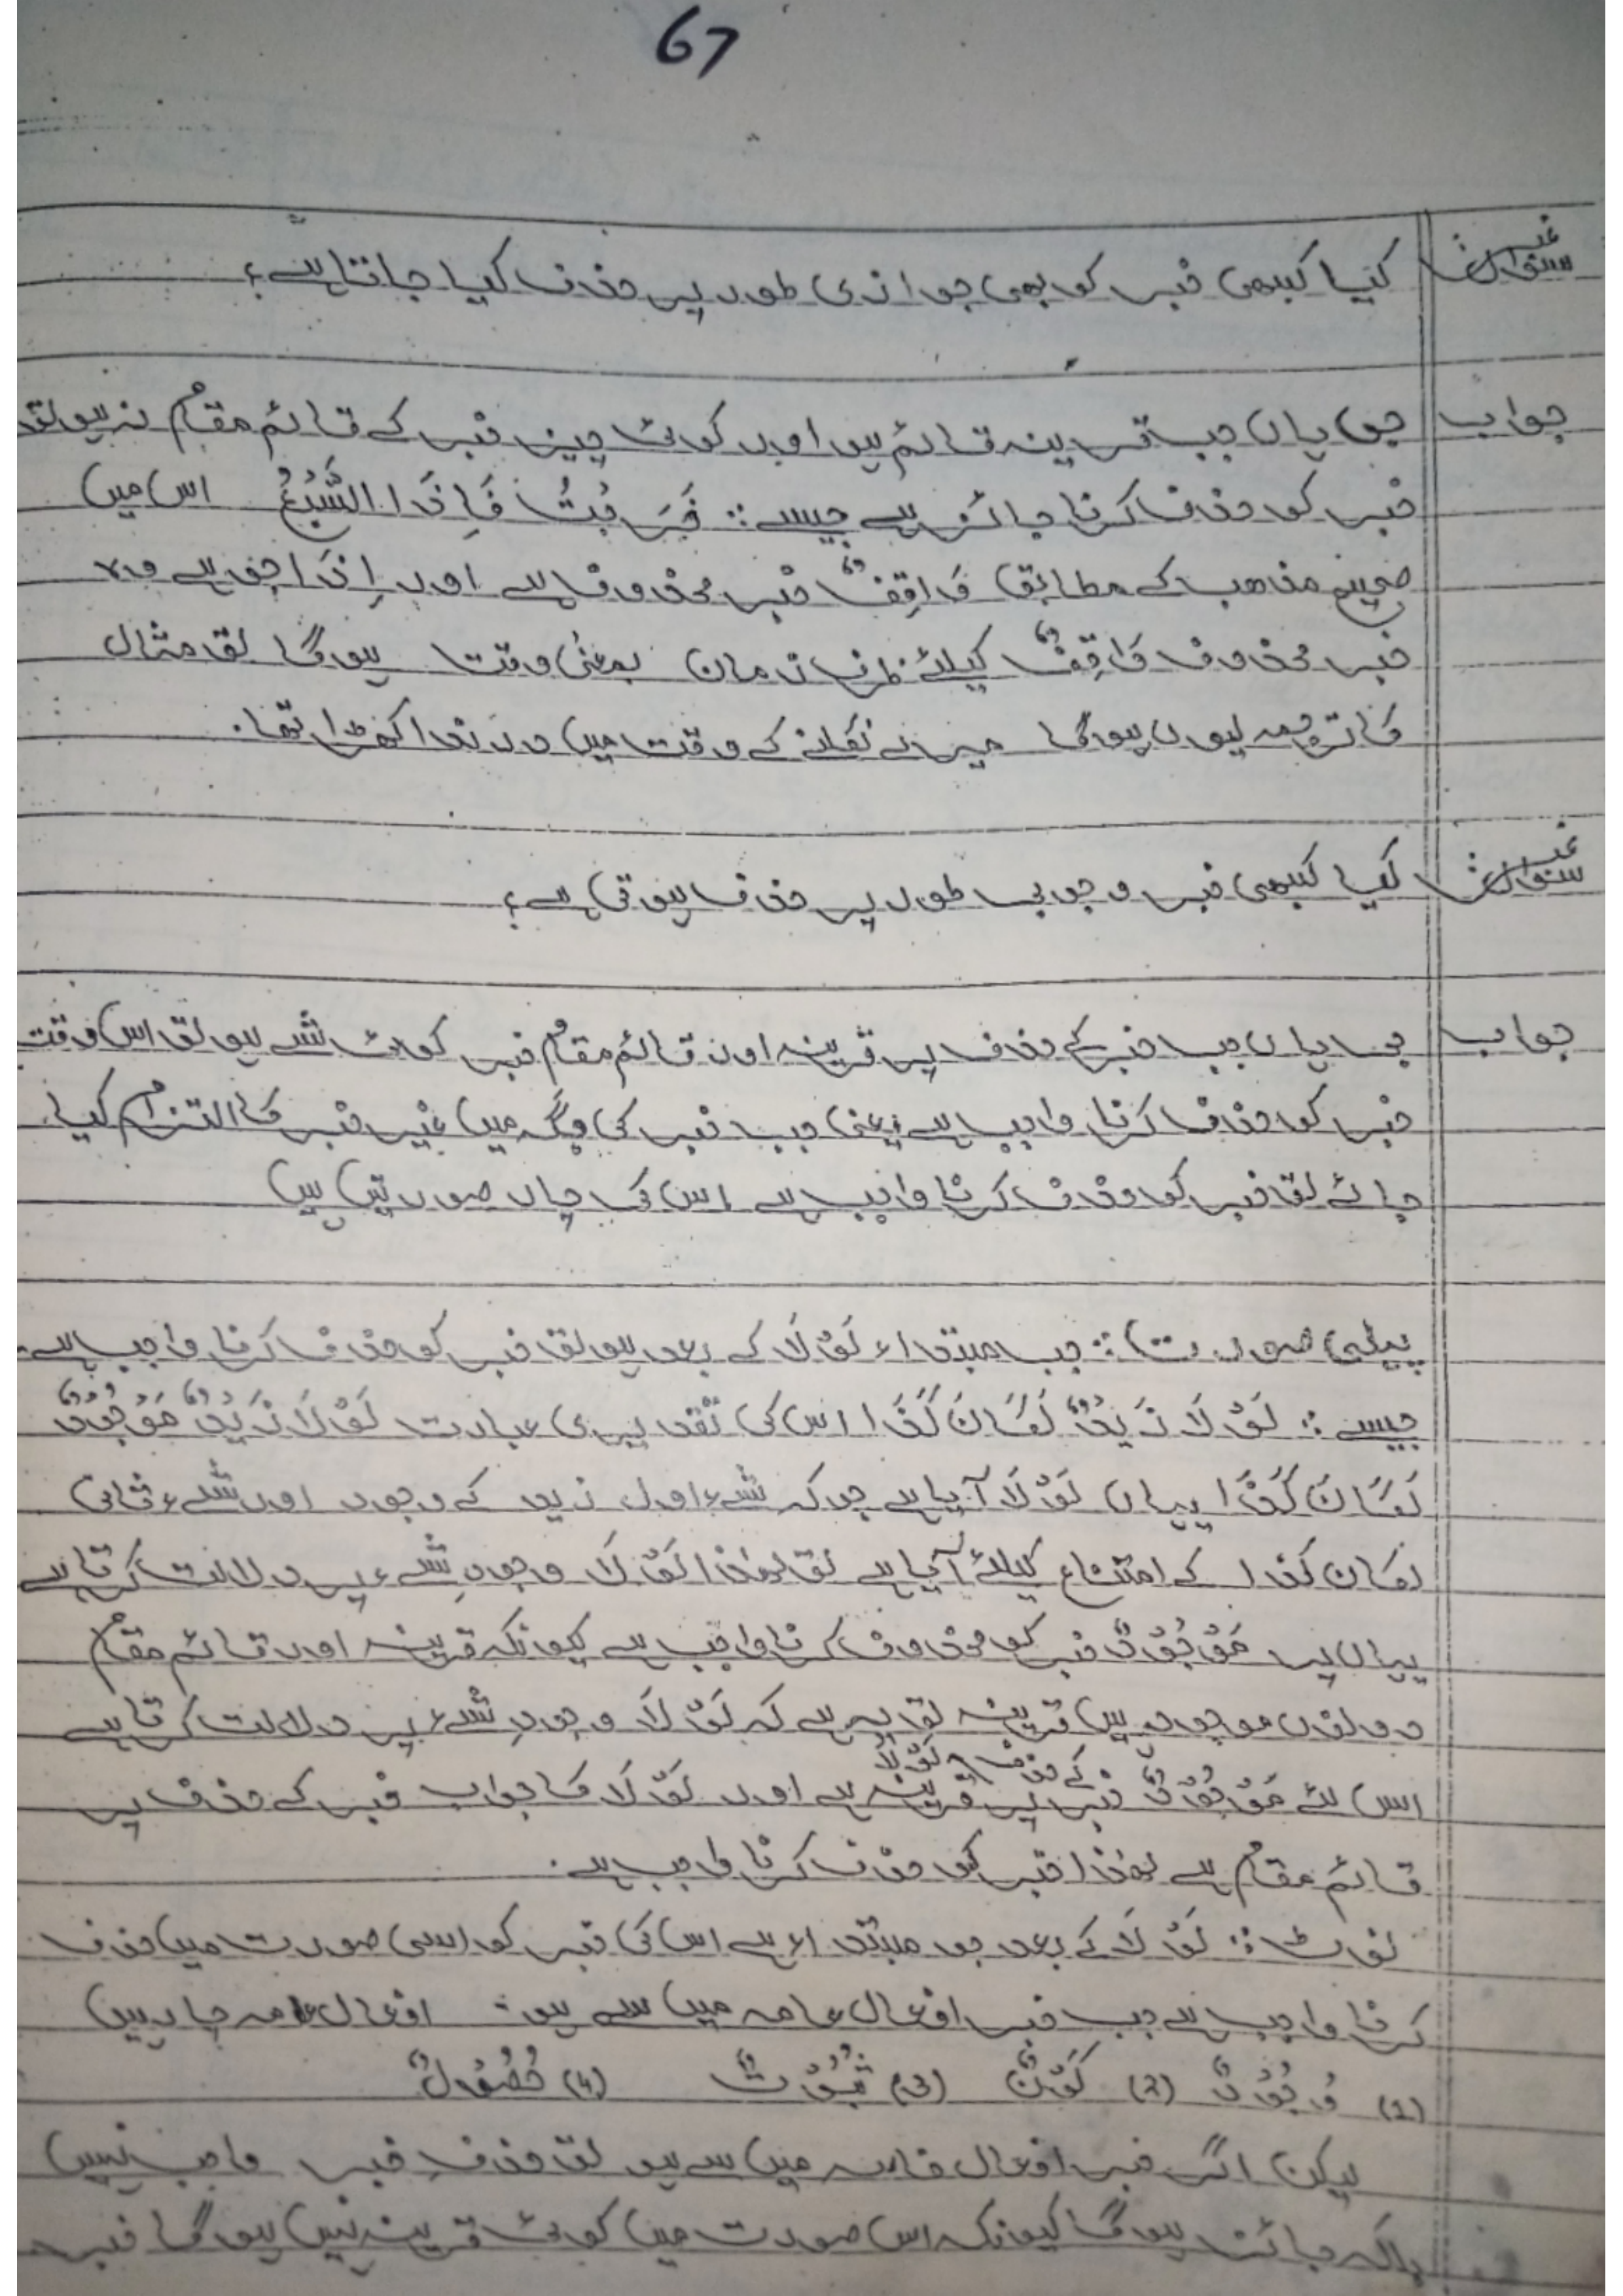 67
سوال نمبر کیا کبھی خبر کو بھی جوازی طور پر حذف کیا جاتا ہے؟
جواب جی ہاں جب قرینہ قائم ہو اور کوئی چیز خبر کے قائم مقام نہ ہو تو
خبر کو حذف کرنا جائز ہے جیسے : خَرَجْتُ فَاِذَا السَّبُعُ اس میں
صحیح مذھب کے مطابق وَاقِفٌ خبر محذوف ہے اور اِذَا جو ہے وہ
خبر محذوف وَاقِفٌ کیلئے ظرف زمان بمعنی وقت ہوگا تو مثال
کا ترجمہ یوں ہوگا میرے نکلنے کے وقت میں درندا کھڑا تھا۔
سوال نمبر کیا کبھی خبر وجوبی طور پر حذف ہوتی ہے؟
جواب جی ہاں جب خبر کے حذف پر قرینہ اور قائم مقام خبر کوئی شے ہو تو اس وقت
خبر کو حذف کرنا واجب ہے یعنی جب خبر کی جگہ میں غیر خبر کا التزام کیا
جائے تو خبر کو حذف کرنا واجب ہے اس کی چار صورتیں ہیں
پہلی صورت : جب مبتداء لَوْلَا کے بعد ہو تو خبر کو حذف کرنا واجب ہے۔
جیسے : لَوْلَا زَیْدٌ لَکَانَ کَذَا اس کی تقدیری عبارت لَوْلَا زَیْدٌ مَوْجُوْدٌ
لَکَانَ کَذَا یہاں لَوْلَا آیا ہے جو کہ شےء اول زید کے وجود اور شےء ثانی
لکان کذا کے امتناع کیلئے آیا ہے تو لھٰذا لَوْلَا وجودِ شےء پر دلالت کرتا ہے
یہاں پر مَوْجُوْدٌ خبر کو محذوف کرنا واجب ہے کیونکہ قرینہ اور قائم مقام
دونوں موجود ہیں قرینہ تو یہ ہے کہ لَوْلَا وجودِ شےء پر دلالت کرتا ہے
اس لئے مَوْجُوْدٌ خبر کے حذف پر لَوْلَا قرینہ ہے اور لَوْلَا کا جواب خبر کے حذف پر
قائم مقام ہے لھٰذا خبر کو حذف کرنا واجب ہے۔
نوٹ : لَوْلَا کے بعد جو مبتداء ہے اس کی خبر کو اسی صورت میں حذف
کرنا واجب ہے جب خبر افعال عامہ میں سے ہو۔ افعال عامہ چار ہیں
(1) وُجُوْدٌ (2) کَوْنٌ (3) ثُبُوْتٌ (4) حُصُوْلٌ
لیکن اگر خبر افعال خاصہ میں سے ہو تو حذفِ خبر واجب نہیں
بلکہ جائز ہوگا کیونکہ اس صورت میں کوئی قرینہ نہیں ہوگا خبر